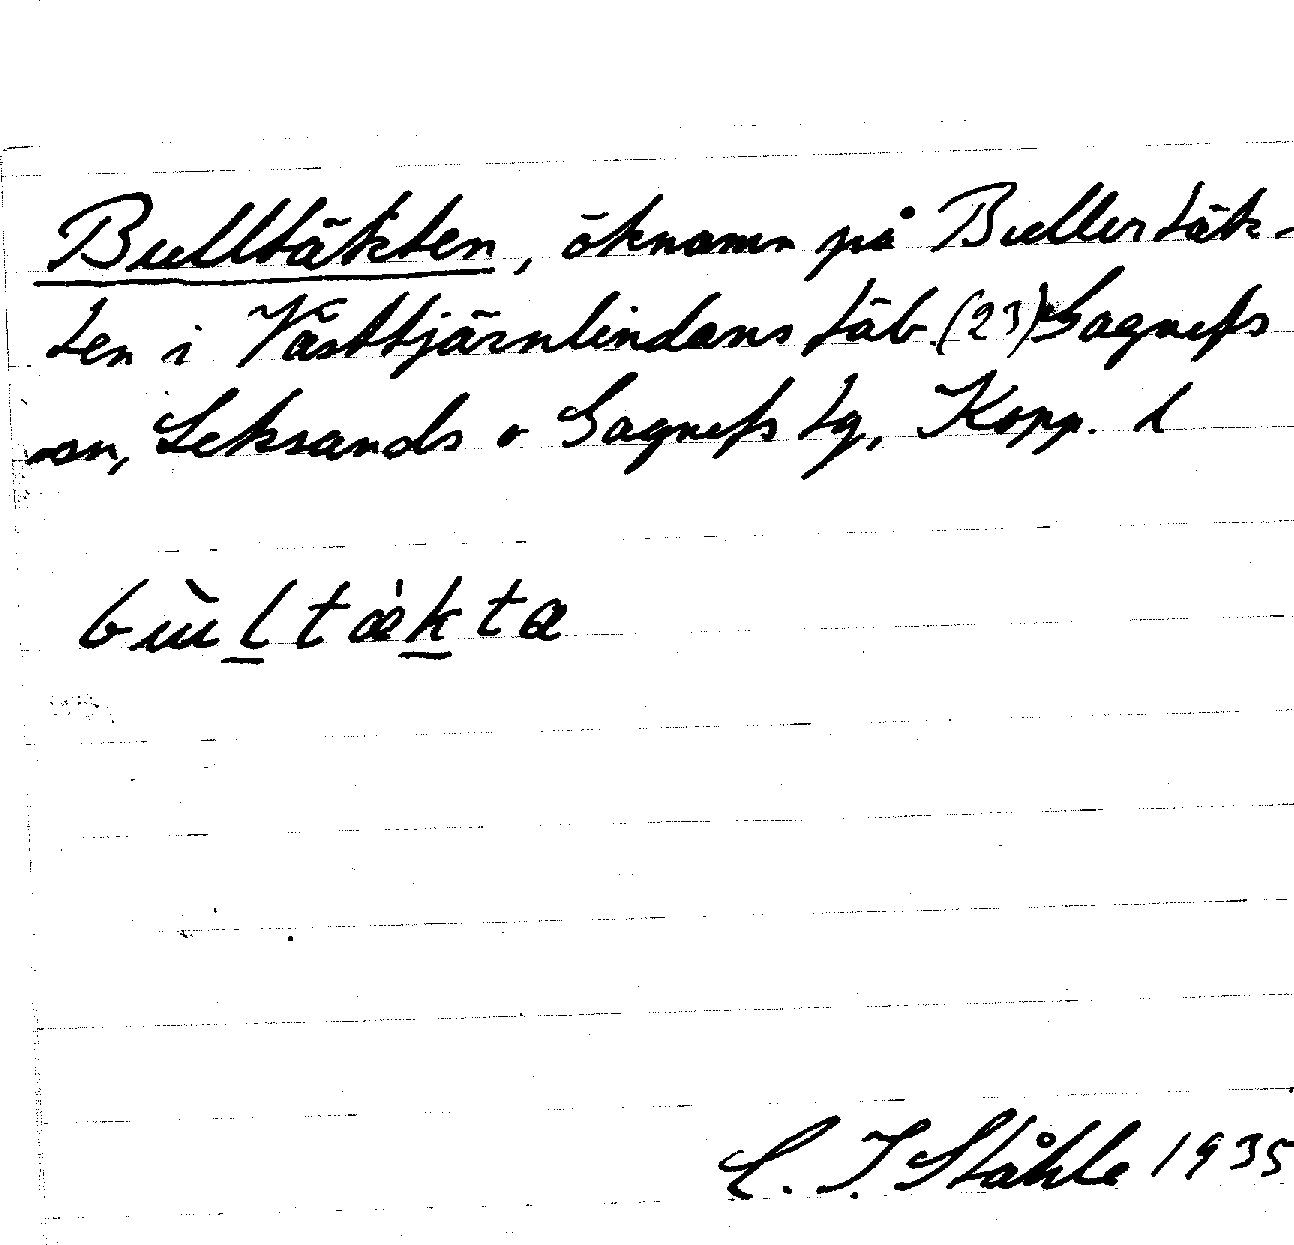 Bulltäkten, öknamn på Bullertäk-
ten i Västtjärnlindans fäb. (23) Gagnefs
sn, Leksands o Gagnefs tg, Kopp. l
bùltækta
C. I. Ståhle 1935